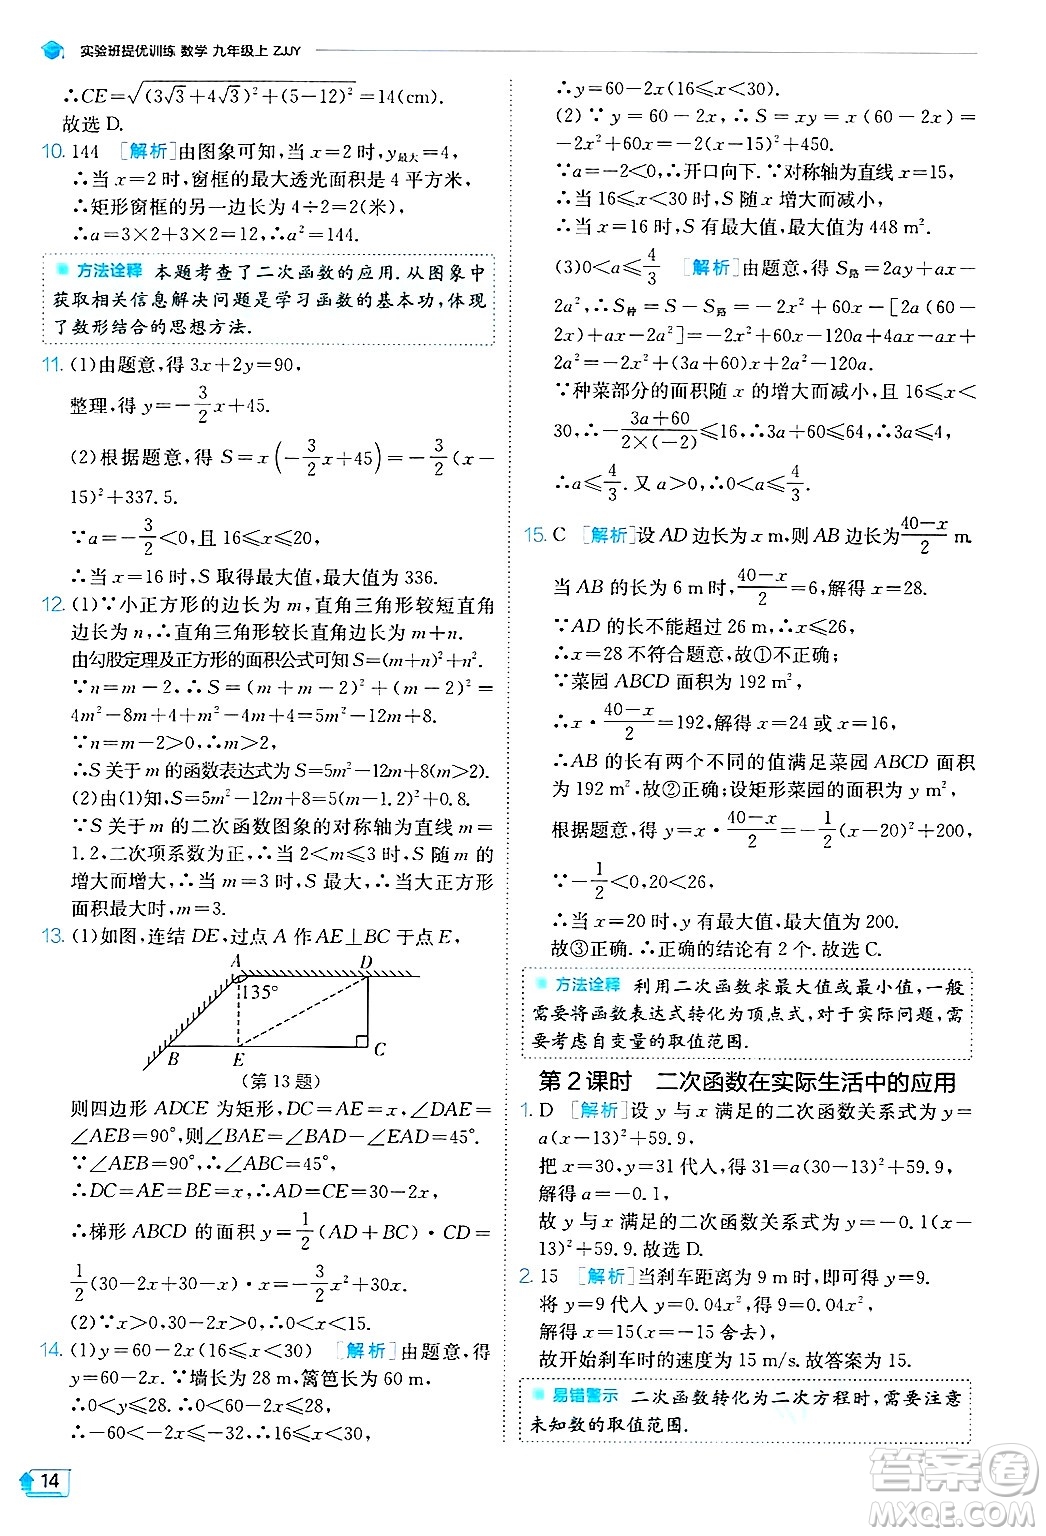 实验班提优训练 数学 九年级上 ZJJY
∴CE=√((3√3+4√3)²+(5-12)²)=14(cm).
故选 D.
10. 144 [解析]由图象可知,当 x=2 时,y最大=4,
∴当 x=2 时,窗框的最大透光面积是 4 平方米,
∴矩形窗框的另一边长为 4÷2=2(米),
∴a=3×2+3×2=12,∴a²=144.
方法诠释 本题考查了二次函数的应用.从图象中
获取相关信息解决问题是学习函数的基本功,体现
了数形结合的思想方法.
11. (1)由题意,得 3x+2y=90,
整理,得 y=-3/2x+45.
(2)根据题意,得 S=x(-3/2x+45)=-3/2(x-
15)²+337.5.
∵a=-3/2<0,且 16≤x≤20,
∴当 x=16 时,S 取得最大值,最大值为 336.
12. (1)∵小正方形的边长为 m,直角三角形较短直角
边长为 n,∴直角三角形较长直角边长为 m+n.
由勾股定理及正方形的面积公式可知 S=(m+n)²+n².
∵n=m-2,∴S=(m+m-2)²+(m-2)²=
4m²-8m+4+m²-4m+4=5m²-12m+8.
∵n=m-2>0,∴m>2,
∴S 关于 m 的函数表达式为 S=5m²-12m+8(m>2).
(2)由(1)知,S=5m²-12m+8=5(m-1.2)²+0.8.
∵S 关于 m 的二次函数图象的对称轴为直线 m=
1.2,二次项系数为正,∴当 2<m≤3 时,S 随 m 的
增大而增大,∴当 m=3 时,S 最大,∴大正方形
面积最大时,m=3.
13. (1)如图,连结 DE,过点 A 作 AE⊥BC 于点 E,
A D
135°
B E C
(第 13 题)
则四边形 ADCE 为矩形,DC=AE=x,∠DAE=
∠AEB=90°,则∠BAE=∠BAD-∠EAD=45°.
∵∠AEB=90°,∴∠ABC=45°,
∴DC=AE=BE=x,∴AD=CE=30-2x,
∴梯形 ABCD 的面积 y=1/2(AD+BC)·CD=
1/2(30-2x+30-x)·x=-3/2x²+30x.
(2)∵x>0,30-2x>0,∴0<x<15.
14. (1)y=60-2x(16≤x<30) [解析]由题意,得
y=60-2x.∵墙长为 28 m,篱笆总长为 60 m,
∴0<y=60-2x≤28.
∴-60<-2x≤-32.∴16≤x<30.
14
∴y=60-2x(16≤x<30).
(2)∵y=60-2x,∴S=xy=x(60-2x)=
-2x²+60x=-2(x-15)²+450.
∵a=-2<0,∴开口向下.∵对称轴为直线 x=15,
∴当 16≤x<30 时,S 随 x 的增大而减小.
∴当 x=16 时,S 有最大值,最大值为 448 m².
(3)0<a≤4/3 [解析]由题意,得 S路=2ay+ax-
2a²,∴S种=S-S路=x(60-2x)-[2a(60-
2x)+ax-2a²]=-2x²+60x-120a+4ax-ax+
2a²=-2x²+(3a+60)x+2a²-120a.
∵种菜部分的面积随 x 的增大而减小,且 16≤x<
30,∴-(3a+60)/(2×(-2))≤16,∴3a+60≤64,∴3a≤4,
∴a≤4/3.又 a>0,∴0<a≤4/3.
15. C [解析]设 AD 边长为 x m,则 AB 边长为(40-x)/2 m.
当 AB 的长为 6 m 时,(40-x)/2=6,解得 x=28.
∵AD 的长不能超过 26 m,∴x≤26.
∴x=28 不符合题意,故①不正确;
∵菜园 ABCD 面积为 192 m²,
∴x·(40-x)/2=192,解得 x=24 或 x=16,
∴AB 的长有两个不同的值满足菜园 ABCD 面积
为 192 m²,故②正确;设矩形菜园的面积为 y m²,
根据题意,得 y=x·(40-x)/2=-1/2(x-20)²+200.
∵-1/2<0,20<26,
∴当 x=20 时,y 有最大值,最大值为 200.
故③正确.∴正确的结论有 2 个.故选 C.
方法诠释 利用二次函数求最大值或最小值,一般
需要将函数表达式转化为顶点式,对于实际问题,需
要考虑自变量的取值范围.
第 2 课时 二次函数在实际生活中的应用
1. D [解析]设 y 与 x 满足的二次函数关系式为 y=
a(x-13)²+59.9,
把 x=30,y=31 代入,得 31=a(30-13)²+59.9,
解得 a=-0.1,
故 y 与 x 满足的二次函数关系式为 y=-0.1(x-
13)²+59.9.故选 D.
2. 15 [解析]当刹车距离为 9 m 时,即 y=9.
将 y=9 代入 y=0.04x²,得 9=0.04x²,
解得 x=15(x=-15 舍去),
故开始刹车时的速度为 15 m/s.故答案为 15.
易错警示 二次函数转化为二次方程时,需要注意
未知数的取值范围.
答案圈
MXQE.COM